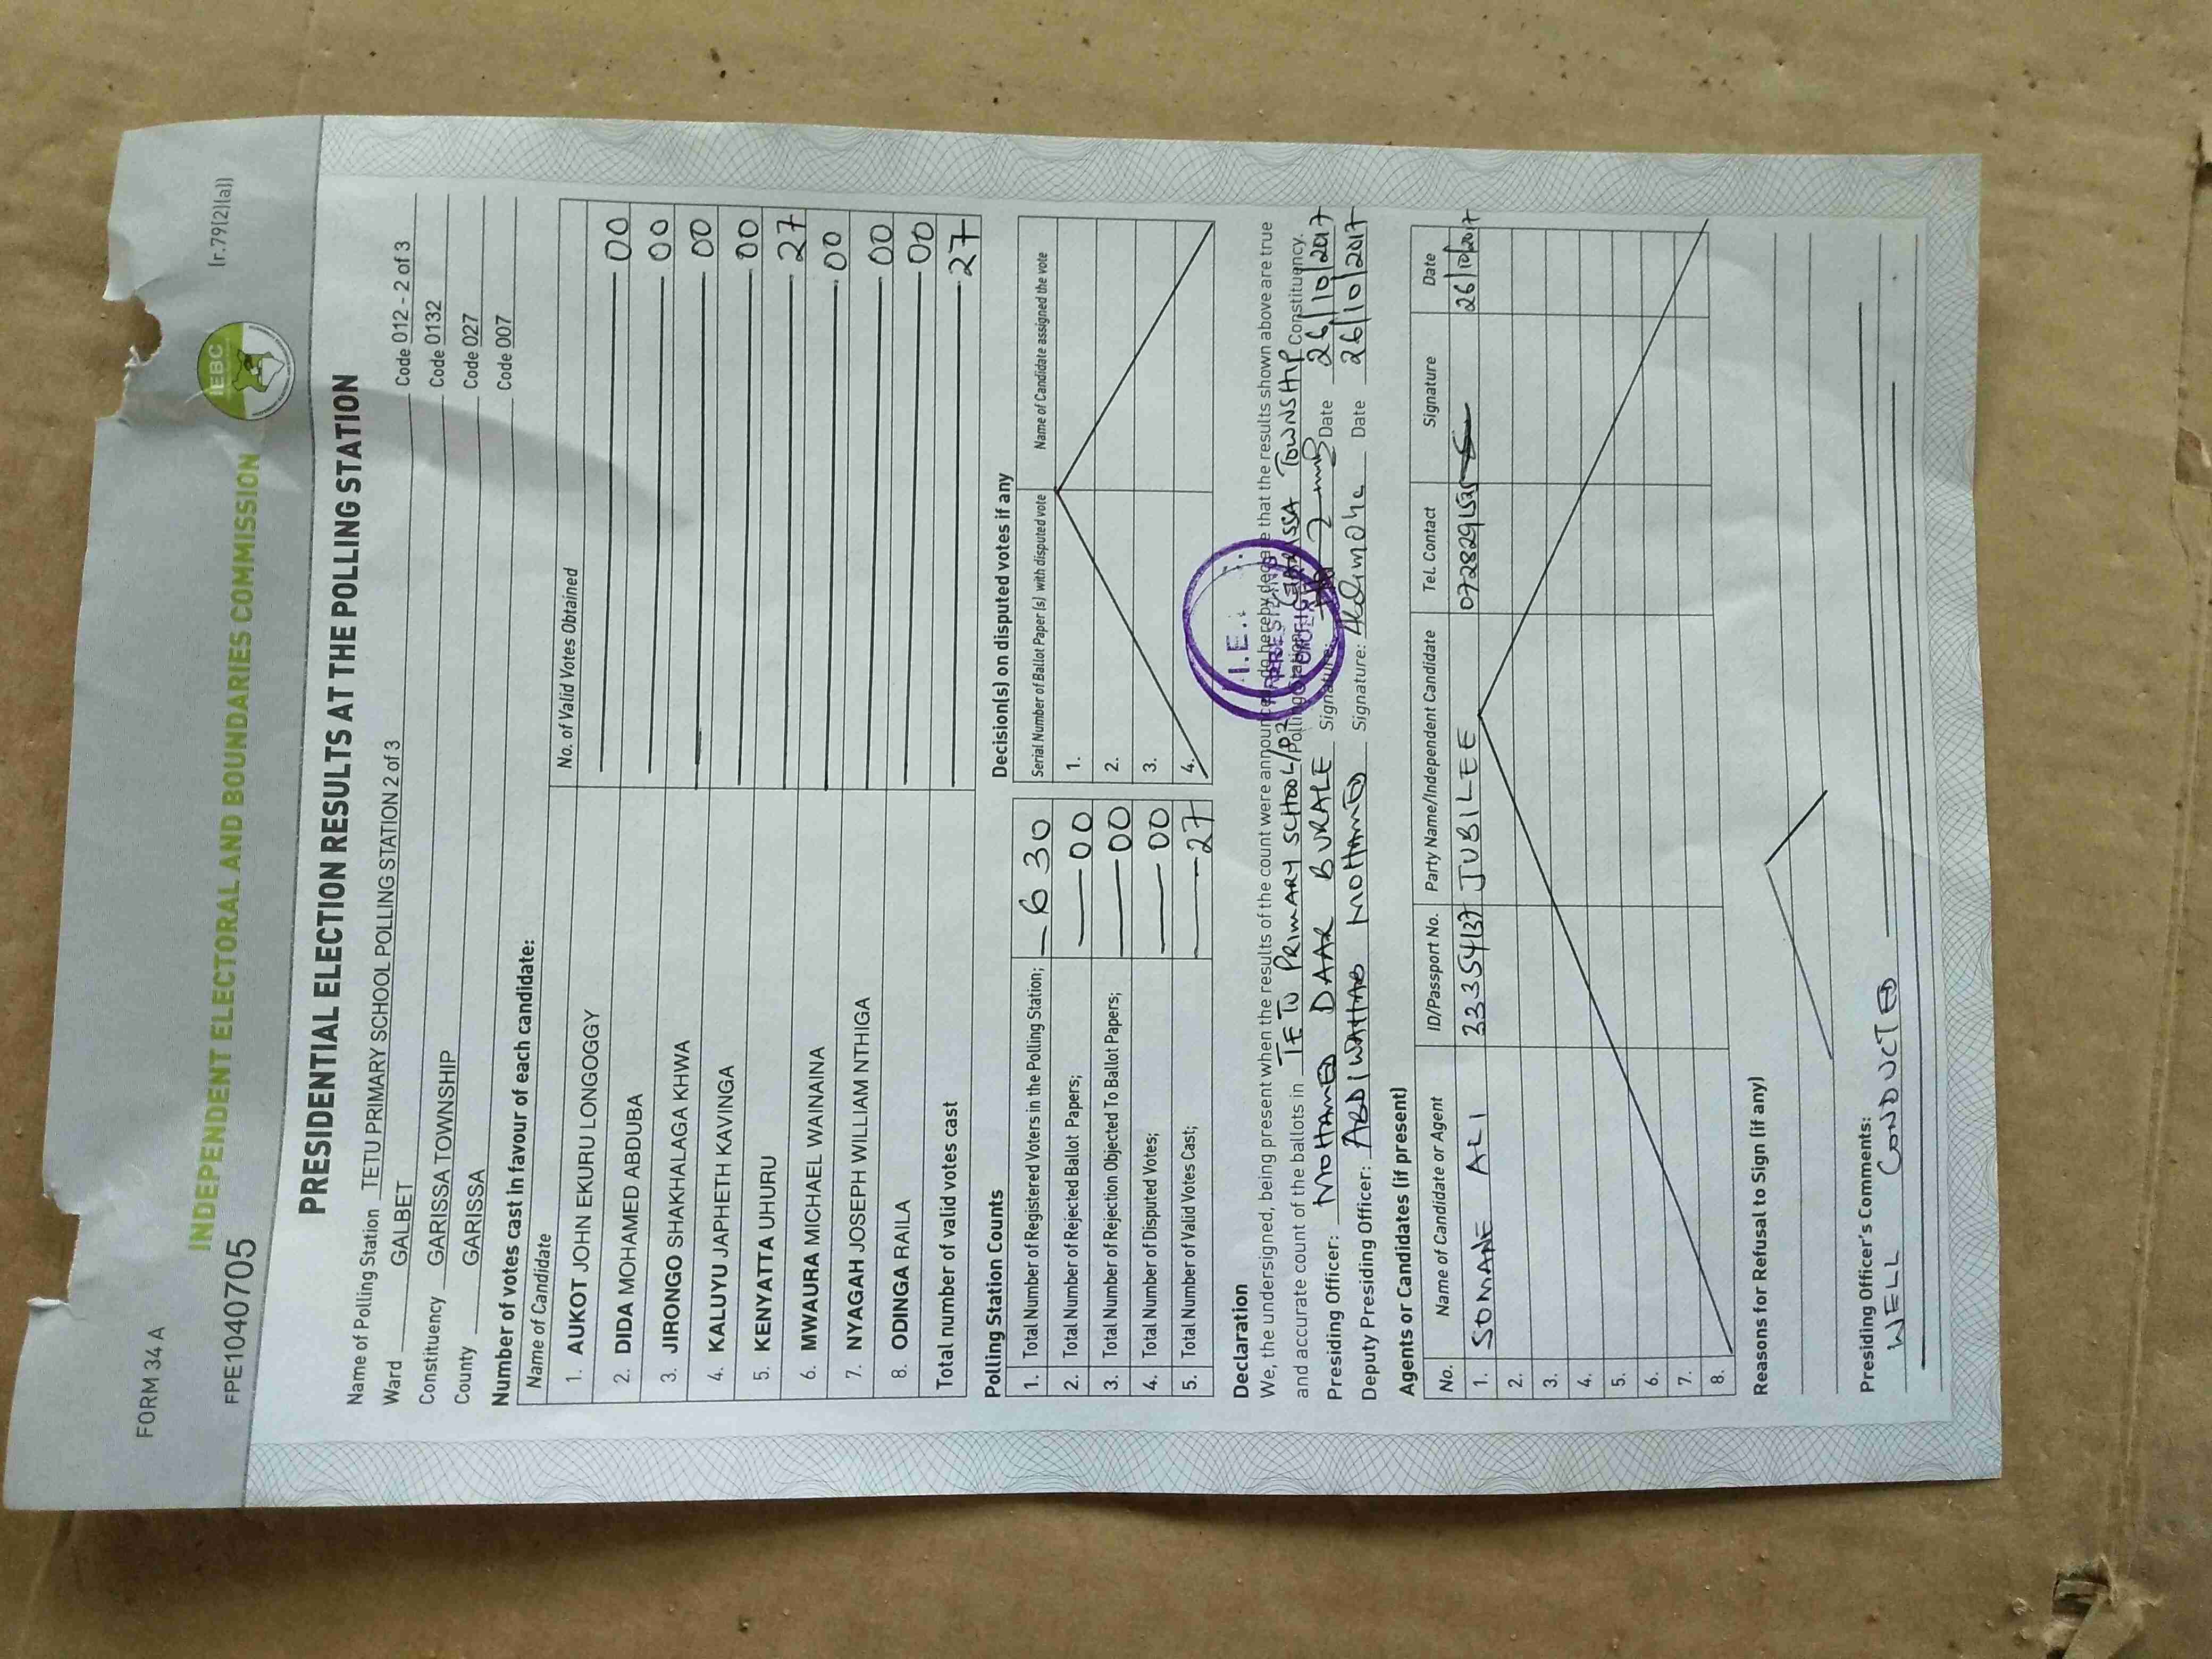 FORM 34 A
(r.79(2)(a))
IEBC
INDEPENDENT ELECTORAL AND BOUNDARIES COMMISSION
FPE1040705
PRESIDENTIAL ELECTION RESULTS AT THE POLLING STATION
Name of Polling Station TETU PRIMARY SCHOOL POLLING STATION 2 of 3 Code 012 - 2 of 3
Ward GALBET Code 0132
Constituency GARISSA TOWNSHIP Code 027
County GARISSA Code 007
Number of votes cast in favour of each candidate:
Name of Candidate No. of Valid Votes Obtained
1. AUKOT JOHN EKURU LONGOGGY 00
2. DIDA MOHAMED ABDUBA 00
3. JIRONGO SHAKHALAGA KHWA 00
4. KALUYU JAPHETH KAVINGA 00
5. KENYATTA UHURU 27
6. MWAURA MICHAEL WAINAINA 00
7. NYAGAH JOSEPH WILLIAM NTHIGA 00
8. ODINGA RAILA 00
Total number of valid votes cast 27
Polling Station Counts
1. Total Number of Registered Voters in the Polling Station; 630
2. Total Number of Rejected Ballot Papers; 00
3. Total Number of Rejection Objected To Ballot Papers; 00
4. Total Number of Disputed Votes; 00
5. Total Number of Valid Votes Cast; 27
Decision(s) on disputed votes if any
Serial Number of Ballot Paper (s) with disputed vote Name of Candidate assigned the vote
1.
2.
3.
4.
Declaration
We, the undersigned, being present when the results of the count were announced, do hereby declare that the results shown above are true
and accurate count of the ballots in TETU PRIMARY SCHOOL/02 Polling Station, GARISSA TOWNSHIP Constituency.
Presiding Officer: MOHAMED DAAR BURALE Signature: Date 26/10/2017
Deputy Presiding Officer: ABDIWAHAB MOHAMED Signature: Date 26/10/2017
I.E.
PRESIDING
OFFICER
Agents or Candidates (if present)
No. Name of Candidate or Agent ID/Passport No. Party Name/Independent Candidate Tel. Contact Signature Date
1. SOMANE ALI 33354137 JUBILEE 26/10/2017
2.
3.
4.
5.
6.
7.
8.
Reasons for Refusal to Sign (if any)
Presiding Officer's Comments:
WELL CONDUCTED